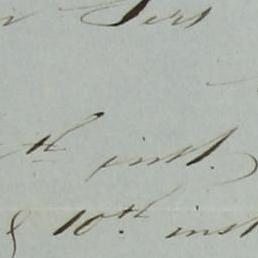 Sers
th inst.
& 10th inst